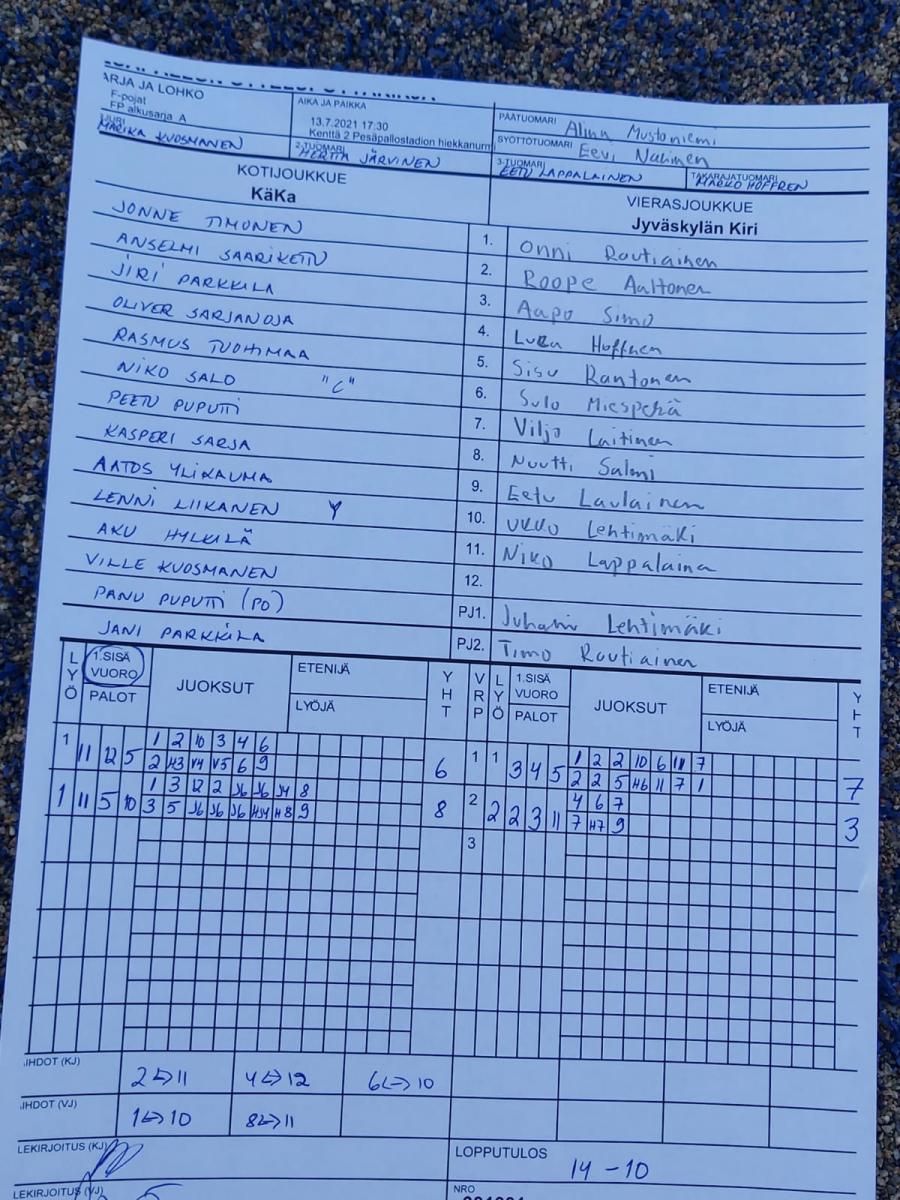 ARJA JA LOHKO
F-pojat
FP alkusarja A
AIKA JA PAIKKA
13.7.2021 17:30
Kenttä 2 Pesäpallostadion hiekkanurm
PÄÄTUOMARI Alina Mustoniemi
SYÖTTÖTUOMARI Eevi Nalinen
MARIKA KUOSMANEN
2-TUOMARI HERTTA JÄRVINEN
3-TUOMARI EETU LAPPALAINEN
TAKARAJATUOMARI MARKO HOFFREN
KOTIJOUKKUE
KäKa
VIERASJOUKKUE
Jyväskylän Kiri
JONNE TIMONEN 1. Onni Rautiainen
ANSELMI SAARIKETTU 2. Roope Aaltonen
JIRI PARKKILA 3. Aapo Simo
OLIVER SARJANOJA 4. Luka Hoffren
RASMUS TUOHIMAA 5. Sisu Rantonen
NIKO SALO "C" 6. Sulo Miespehä
PEETU PUPUTTI 7. Viljo Laitinen
KASPERI SARJA 8. Nuutti Salmi
AATOS YLIKAUMA 9. Eetu Laulainen
LENNI LIIKANEN Y 10. UKKO Lehtimäki
AKU HYLKILÄ 11. Niko Lappalaina
VILLE KUOSMANEN 12.
PANU PUPUTTI (PO) PJ1. Juhani Lehtimäki
JANI PARKKILA PJ2. Timo Rautiainen
LYÖ 1.SISÄ VUORO PALOT JUOKSUT ETENIJÄ LYÖJÄ YHT VRP LYÖ 1.SISÄ VUORO PALOT JUOKSUT ETENIJÄ LYÖJÄ YHT
1 11 12 5 1 2 10 3 4 6 6 1 1 3 4 5 1 2 2 10 6 11 7 7
2 H3 V4 V5 6 9 2 2 5 H6 11 7 1
1 11 5 10 1 3 12 2 J6 J6 J4 8 8 2 2 2 3 11 4 6 7 3
3 5 J6 J6 J6 HJ4 H8 9 7 H7 9
3
IHDOT (KJ) 2<->11 4<->12 6<->10
IHDOT (VJ) 1<->10 8<->11
LEKIRJOITUS (KJ)
LOPPUTULOS 14-10
LEKIRJOITUS (VJ)
NRO